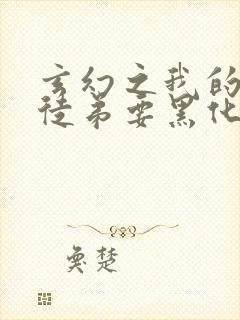 玄幻之我的
徒弟要黑化
奥楚